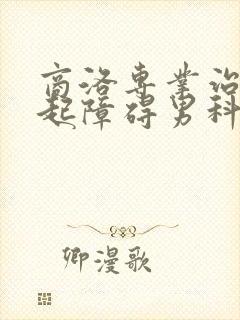 商洛专业治
起障碍男科
卿漫歌